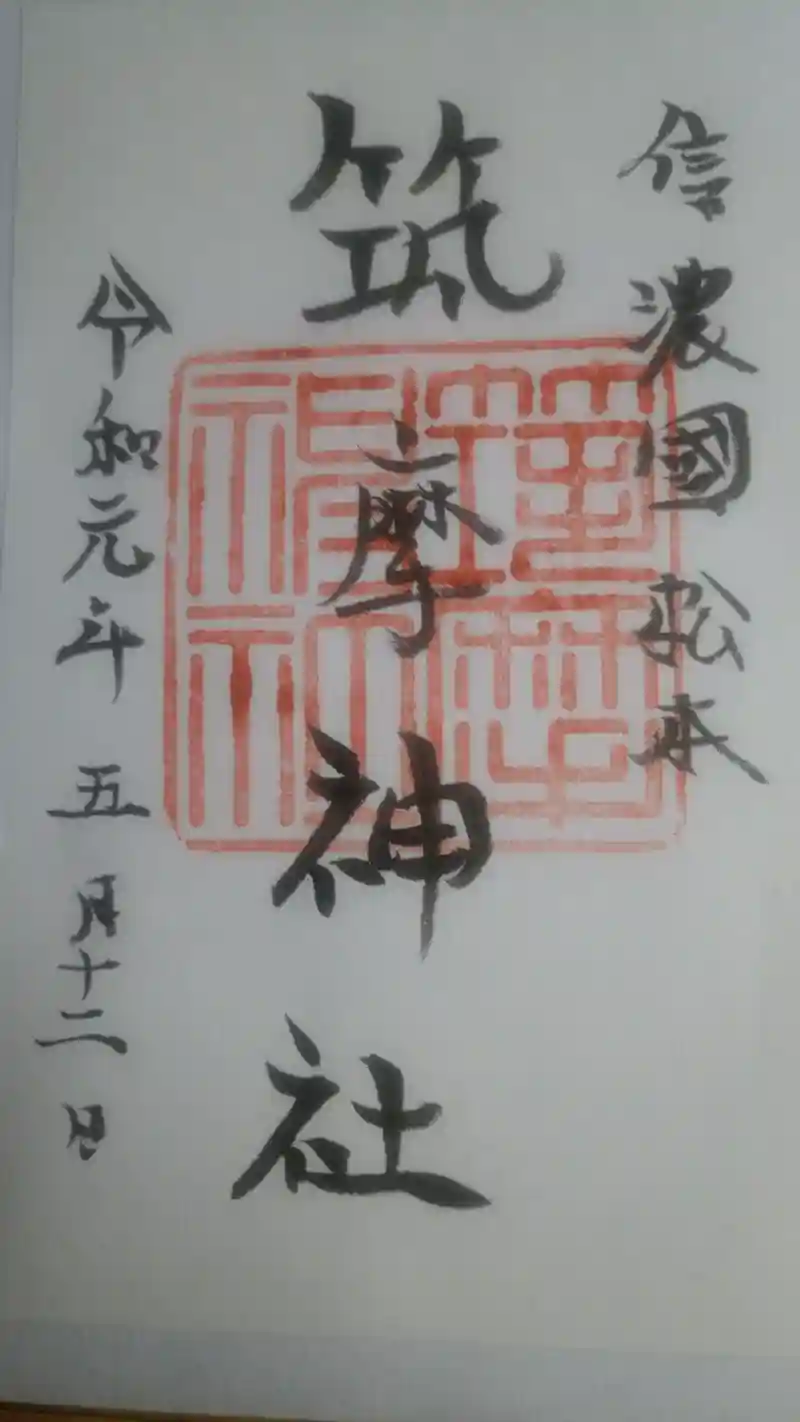 信濃國松本
筑摩神社
令和元年五月十二日